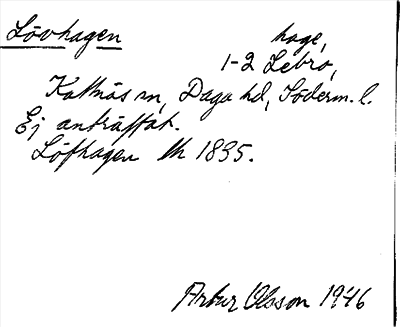 Lövhagen hage,
1-2 Lebro,
Kattnäs sn, Daga hd, Söderm. l.
Ej anträffat.
Löfhagen Uh 1835.
Artur Olsson 1946